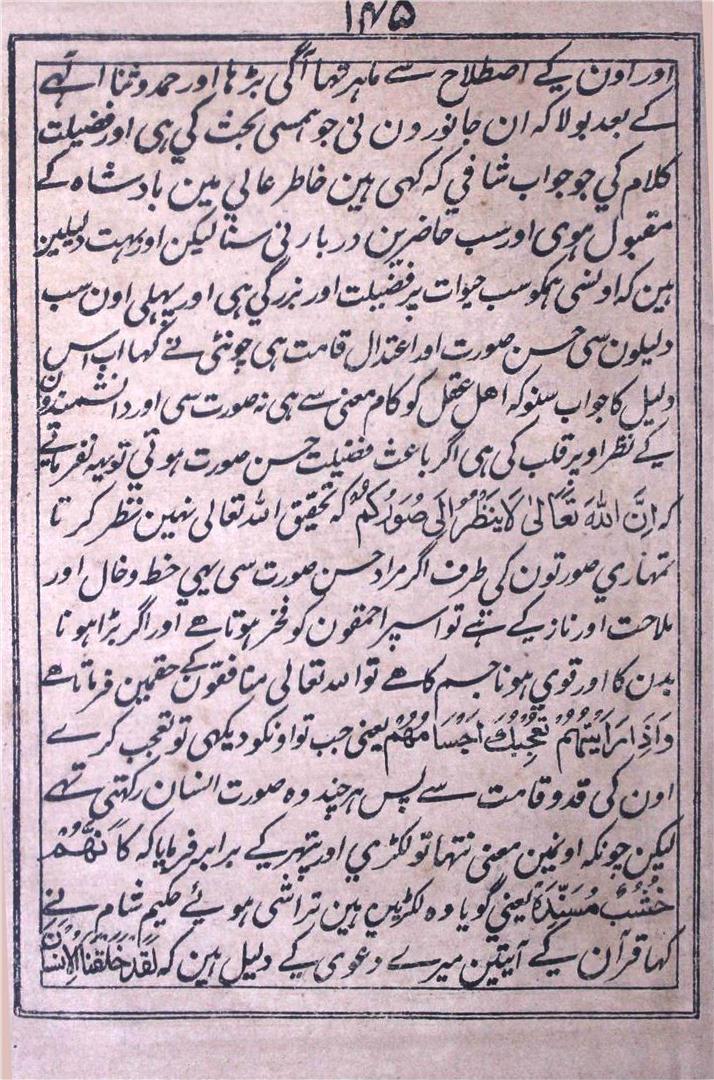 ۱۴۵
اور اون کے اصطلاح سے ماہر تہا آگی بڑہا اور حمد و ثنا الٰہی
کے بعد بولا کہ ان جانورون نی جو ہمسی بحث کی ہی اور فضیلت
کلام کی جو جواب شافی کہ کہی ہین خاطر عالی مین بادشاہ کے
مقبول ہوی اور سب حاضرین دربار نی سنا لیکن اور بہت دلیلین
ہین کہ اونسی ہمکو سب حیوات پر فضیلت اور بزرگی ہی اور پہلی اون سب
دلیلون سی حسن صورت اور اعتدال قامت ہی چونٹی نے کہا اب اس
دلیل کا جواب سنو کہ اھل عقل کو کام معنی سے ہی نہ صورت سی اور دانشمندون
کے نظر اوپر قلب کی ہی اگر باعث فضیلت حسن صورت ہوتی تو یہ نفرماتے
کہ اِنَّ اللّٰہَ تَعَالیٰ لَا یَنْظُرُ اِلیٰ صُوَرِکُمْ کہ تحقیق اللہ تعالی نہین نظر کرتا
تمہاری صورتون کی طرف اگر مراد حسن صورت سی یہی خط و خال اور
ملاحت اور ناز کے ہے تو اسپر احمقون کو فخر ہوتا ھے اور اگر بڑا ہونا
بدن کا اور قوی ہونا جسم کا ھے تو اللہ تعالی منافقون کے حقمین فرماتا ھے
وَاِذَا رَاَیْتَہُمْ تُعْجِبُكَ اَجْسَامُہُمْ یعنی جب تو اونکو دیکھی تو تعجب کرے
اون کی قد و قامت سے پس ہر چند وہ صورت انسان رکہتی تہے
لیکن چونکہ اونمین معنی نتہا تو لکڑی اور پتہر کے برابر فرمایا کہ کَاَنَّہُمْ
خُشُبٌ مُسَنَّدَۃٌ یعنی گویا وہ لکڑیین ہین تراشی ہوئے حکیم شام نے
کہا قرآن کے آیتین میرے دعوی کے دلیل ہین کہ لَقَدْ خَلَقْنَا الْاِنْسَانَ